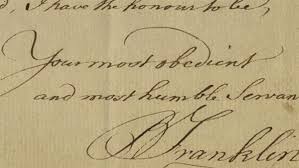 I have the honour to be,
Your most obedient
and most humble Servan
B Franklin